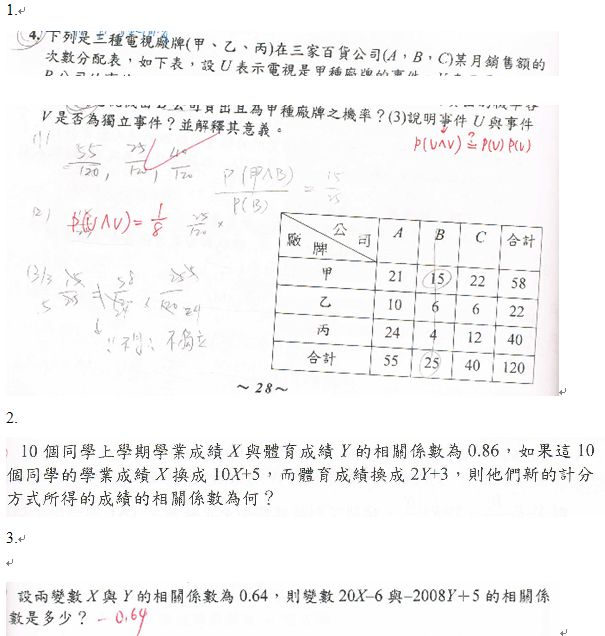 1.
4. 下列是三種電視廠牌(甲、乙、丙)在三家百貨公司(A,B,C)某月銷售額的
次數分配表,如下表,設 U 表示電視是甲種廠牌的事件
公司貨出且為甲種廠牌之機率?(3)說明事件 U 與事件
V 是否為獨立事件?並解釋其意義。
P(U∧V) ≟ P(U) P(V)
(1)
55/120, 25/120, 40/120
P(甲∧B)/P(B) = 15/25
(2) P(U∧V)=1/8
不獨立
公司 廠牌 A B C 合計
甲 21 15 22 58
乙 10 6 6 22
丙 24 4 12 40
合計 55 25 40 120
~28~
2.
10 個同學上學期學業成績 X 與體育成績 Y 的相關係數為 0.86,如果這 10
個同學的學業成績 X 換成 10X+5,而體育成績換成 2Y+3,則他們新的計分
方式所得的成績的相關係數為何?
3.
設兩變數 X 與 Y 的相關係數為 0.64,則變數 20X–6 與–2008Y+5 的相關係
數是多少? -0.64